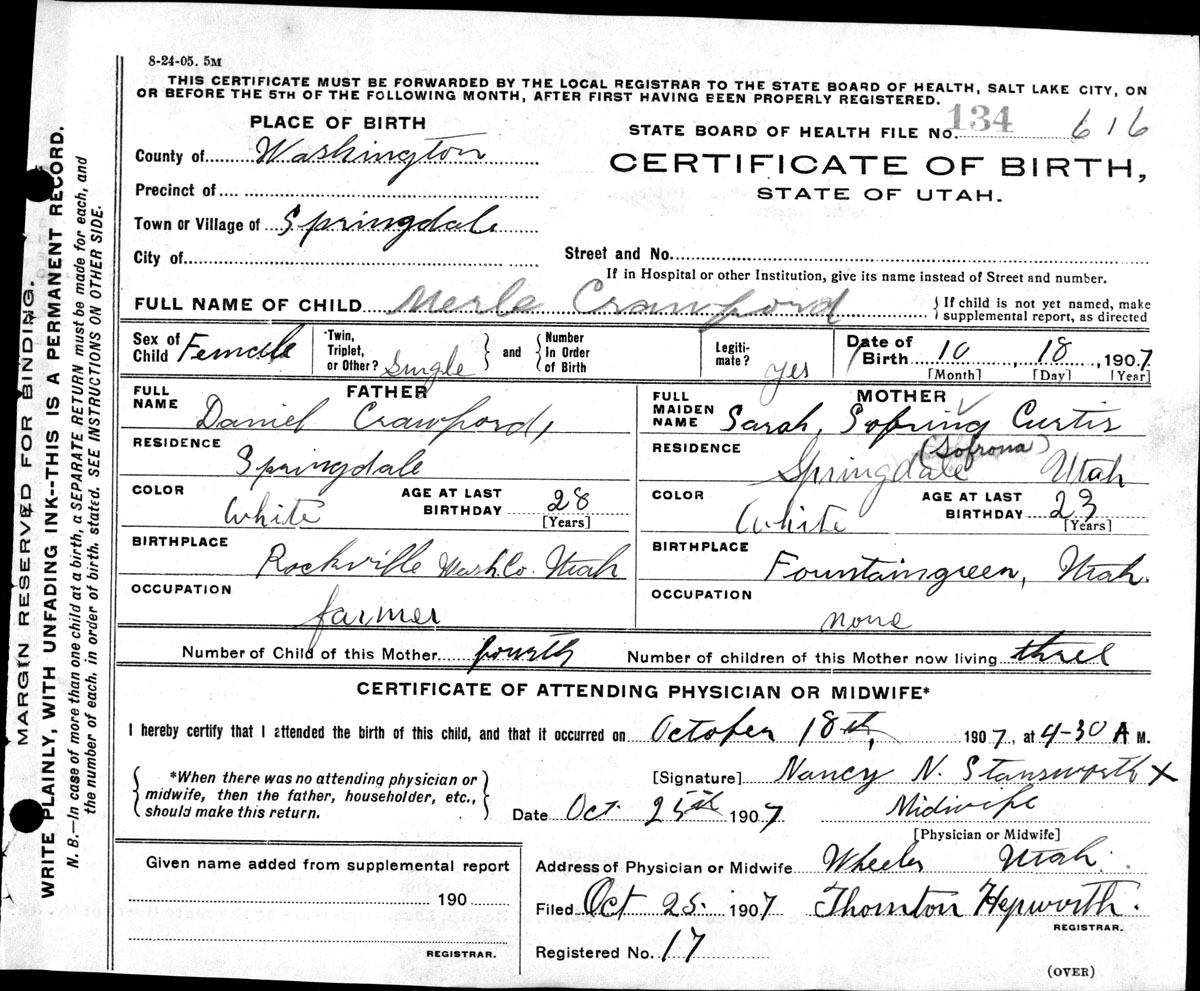 8-24-05. 5M
THIS CERTIFICATE MUST BE FORWARDED BY THE LOCAL REGISTRAR TO THE STATE BOARD OF HEALTH, SALT LAKE CITY, ON
OR BEFORE THE 5TH OF THE FOLLOWING MONTH, AFTER FIRST HAVING BEEN PROPERLY REGISTERED.
PLACE OF BIRTH
STATE BOARD OF HEALTH FILE No. 134 616
County of Washington
CERTIFICATE OF BIRTH,
STATE OF UTAH.
Precinct of
Town or Village of Springdale
City of
Street and No.
If in Hospital or other Institution, give its name instead of Street and number.
FULL NAME OF CHILD Merle Crawford
{ If child is not yet named, make
supplemental report, as directed
Sex of Child Female
Twin, Triplet, or Other? Single } and { Number In Order of Birth
Legiti-mate? yes
Date of Birth 10, 18, 1907.
[Month] [Day] [Year]
FATHER
FULL NAME Daniel Crawford,
RESIDENCE
Springdale
COLOR White
AGE AT LAST BIRTHDAY 28
[Years]
BIRTHPLACE
Rockville Wash. Co. Utah
OCCUPATION
farmer
MOTHER
FULL MAIDEN NAME Sarah, Sofring Curtis
(Sofrona)
RESIDENCE
Springdale Utah
COLOR White
AGE AT LAST BIRTHDAY 23
[Years]
BIRTHPLACE
Fountaingreen, Utah.
OCCUPATION
none
Number of Child of this Mother fourth
Number of children of this Mother now living three
CERTIFICATE OF ATTENDING PHYSICIAN OR MIDWIFE*
I hereby certify that I attended the birth of this child, and that it occurred on October 18th, 1907, at 4-30 A M.
{ *When there was no attending physician or
midwife, then the father, householder, etc.,
should make this return. }
[Signature] Nancy N. Stansworth X
Date Oct. 1907
Midwife
[Physician or Midwife]
Given name added from supplemental report
190
REGISTRAR.
Address of Physician or Midwife Wheeler Utah.
Filed Oct 25. 1907
Thornton Hepworth.
REGISTRAR.
Registered No. 17
(OVER)
MARGIN RESERVED FOR BINDING.
WRITE PLAINLY, WITH UNFADING INK--THIS IS A PERMANENT RECORD.
N. B.—In case of more than one child at a birth, a SEPARATE RETURN must be made for each, and
the number of each, in order of birth, stated. SEE INSTRUCTIONS ON OTHER SIDE.